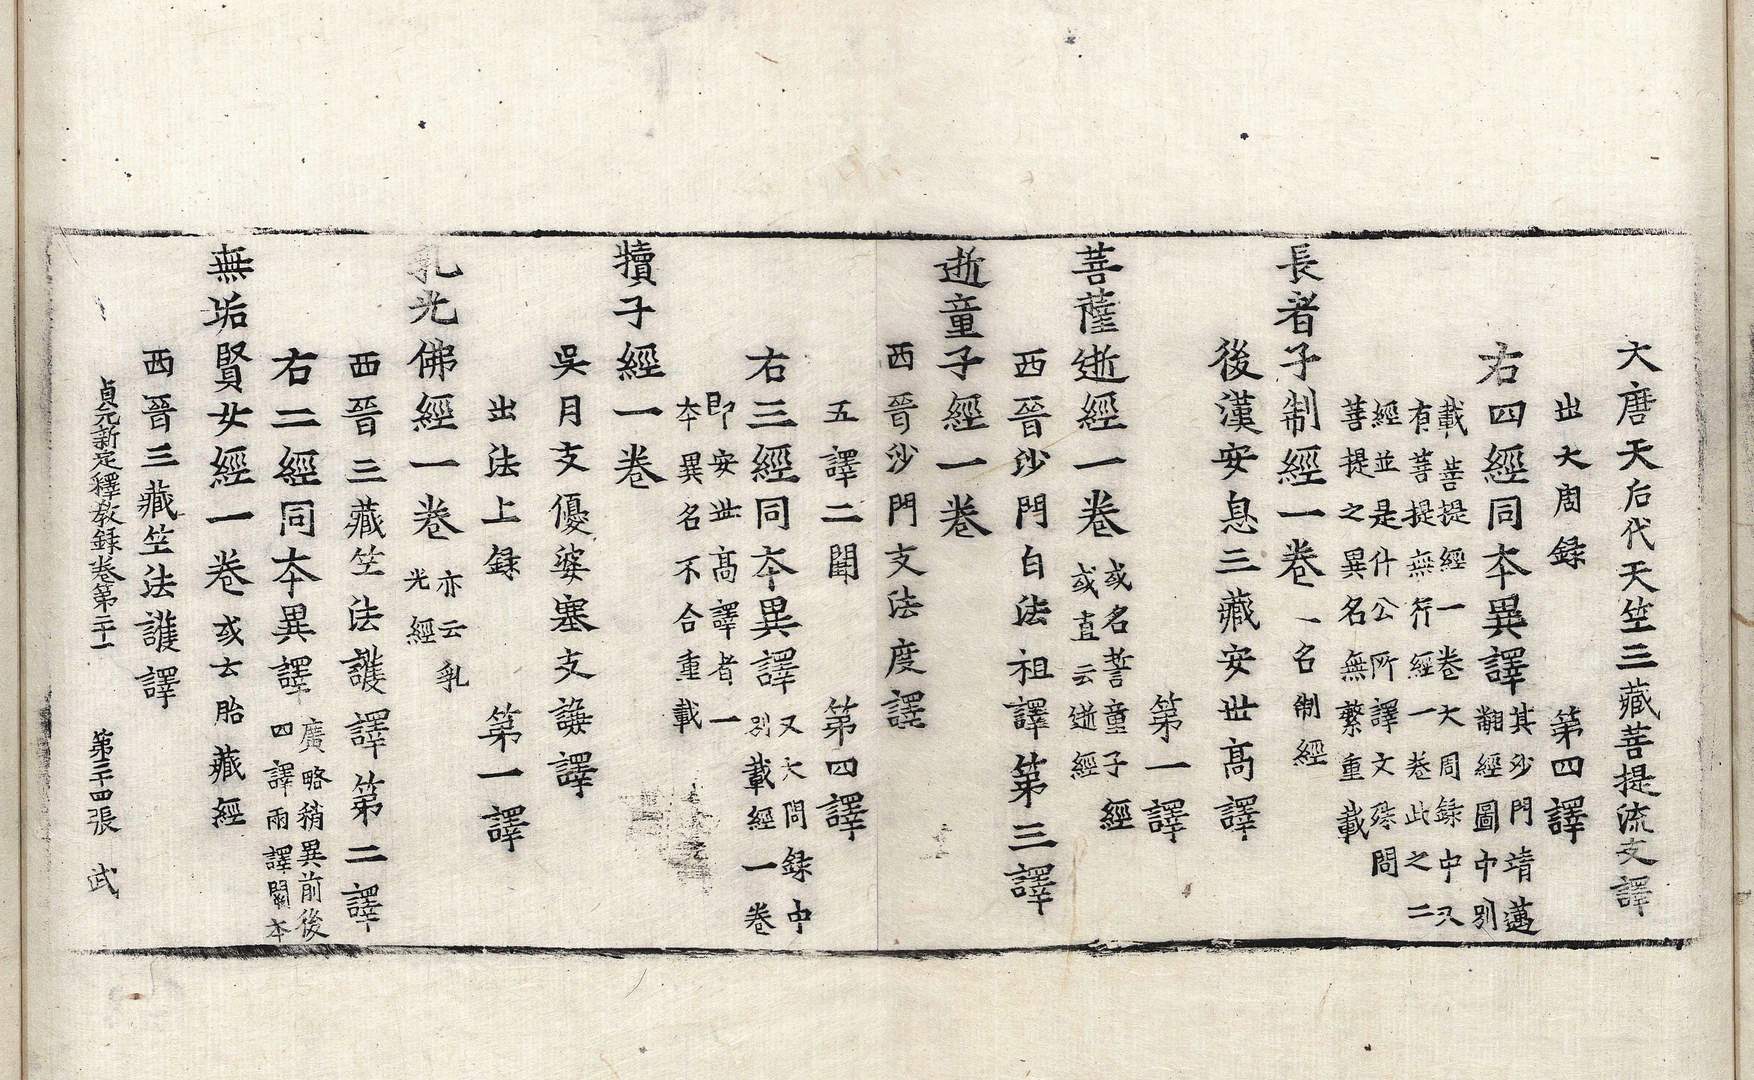 大唐天后代天竺三藏菩提流支譯
出大周録　第四譯
右四經同本異譯其沙門靖邁
翻經圖中別
載菩提經一卷大周録中又
有菩提無行經一卷此之二
經並是什公所譯文殊問
菩提之異名無繁重載
長者子制經一卷一名制經
後漢安息三藏安世高譯
第一譯
菩薩逝經一卷或名誓童子經
或直云逝經
西晉沙門白法祖譯第三譯
逝童子經一卷
西晉沙門支法度譯
五譯二闕　第四譯
右三經同本異譯又大周録中
別載經一卷
即安世高譯者一
本異名不合重載
犢子經一卷
吳月支優婆塞支謙譯
出法上録　第一譯
乳光佛經一卷亦云乳
光經
西晉三藏竺法護譯第二譯
右二經同本異譯廣略稍異前後
四譯兩譯闕本
無垢賢女經一卷或云胎藏經
西晉三藏竺法護譯
貞元新定釋教録卷第二十一　第三十四張　武